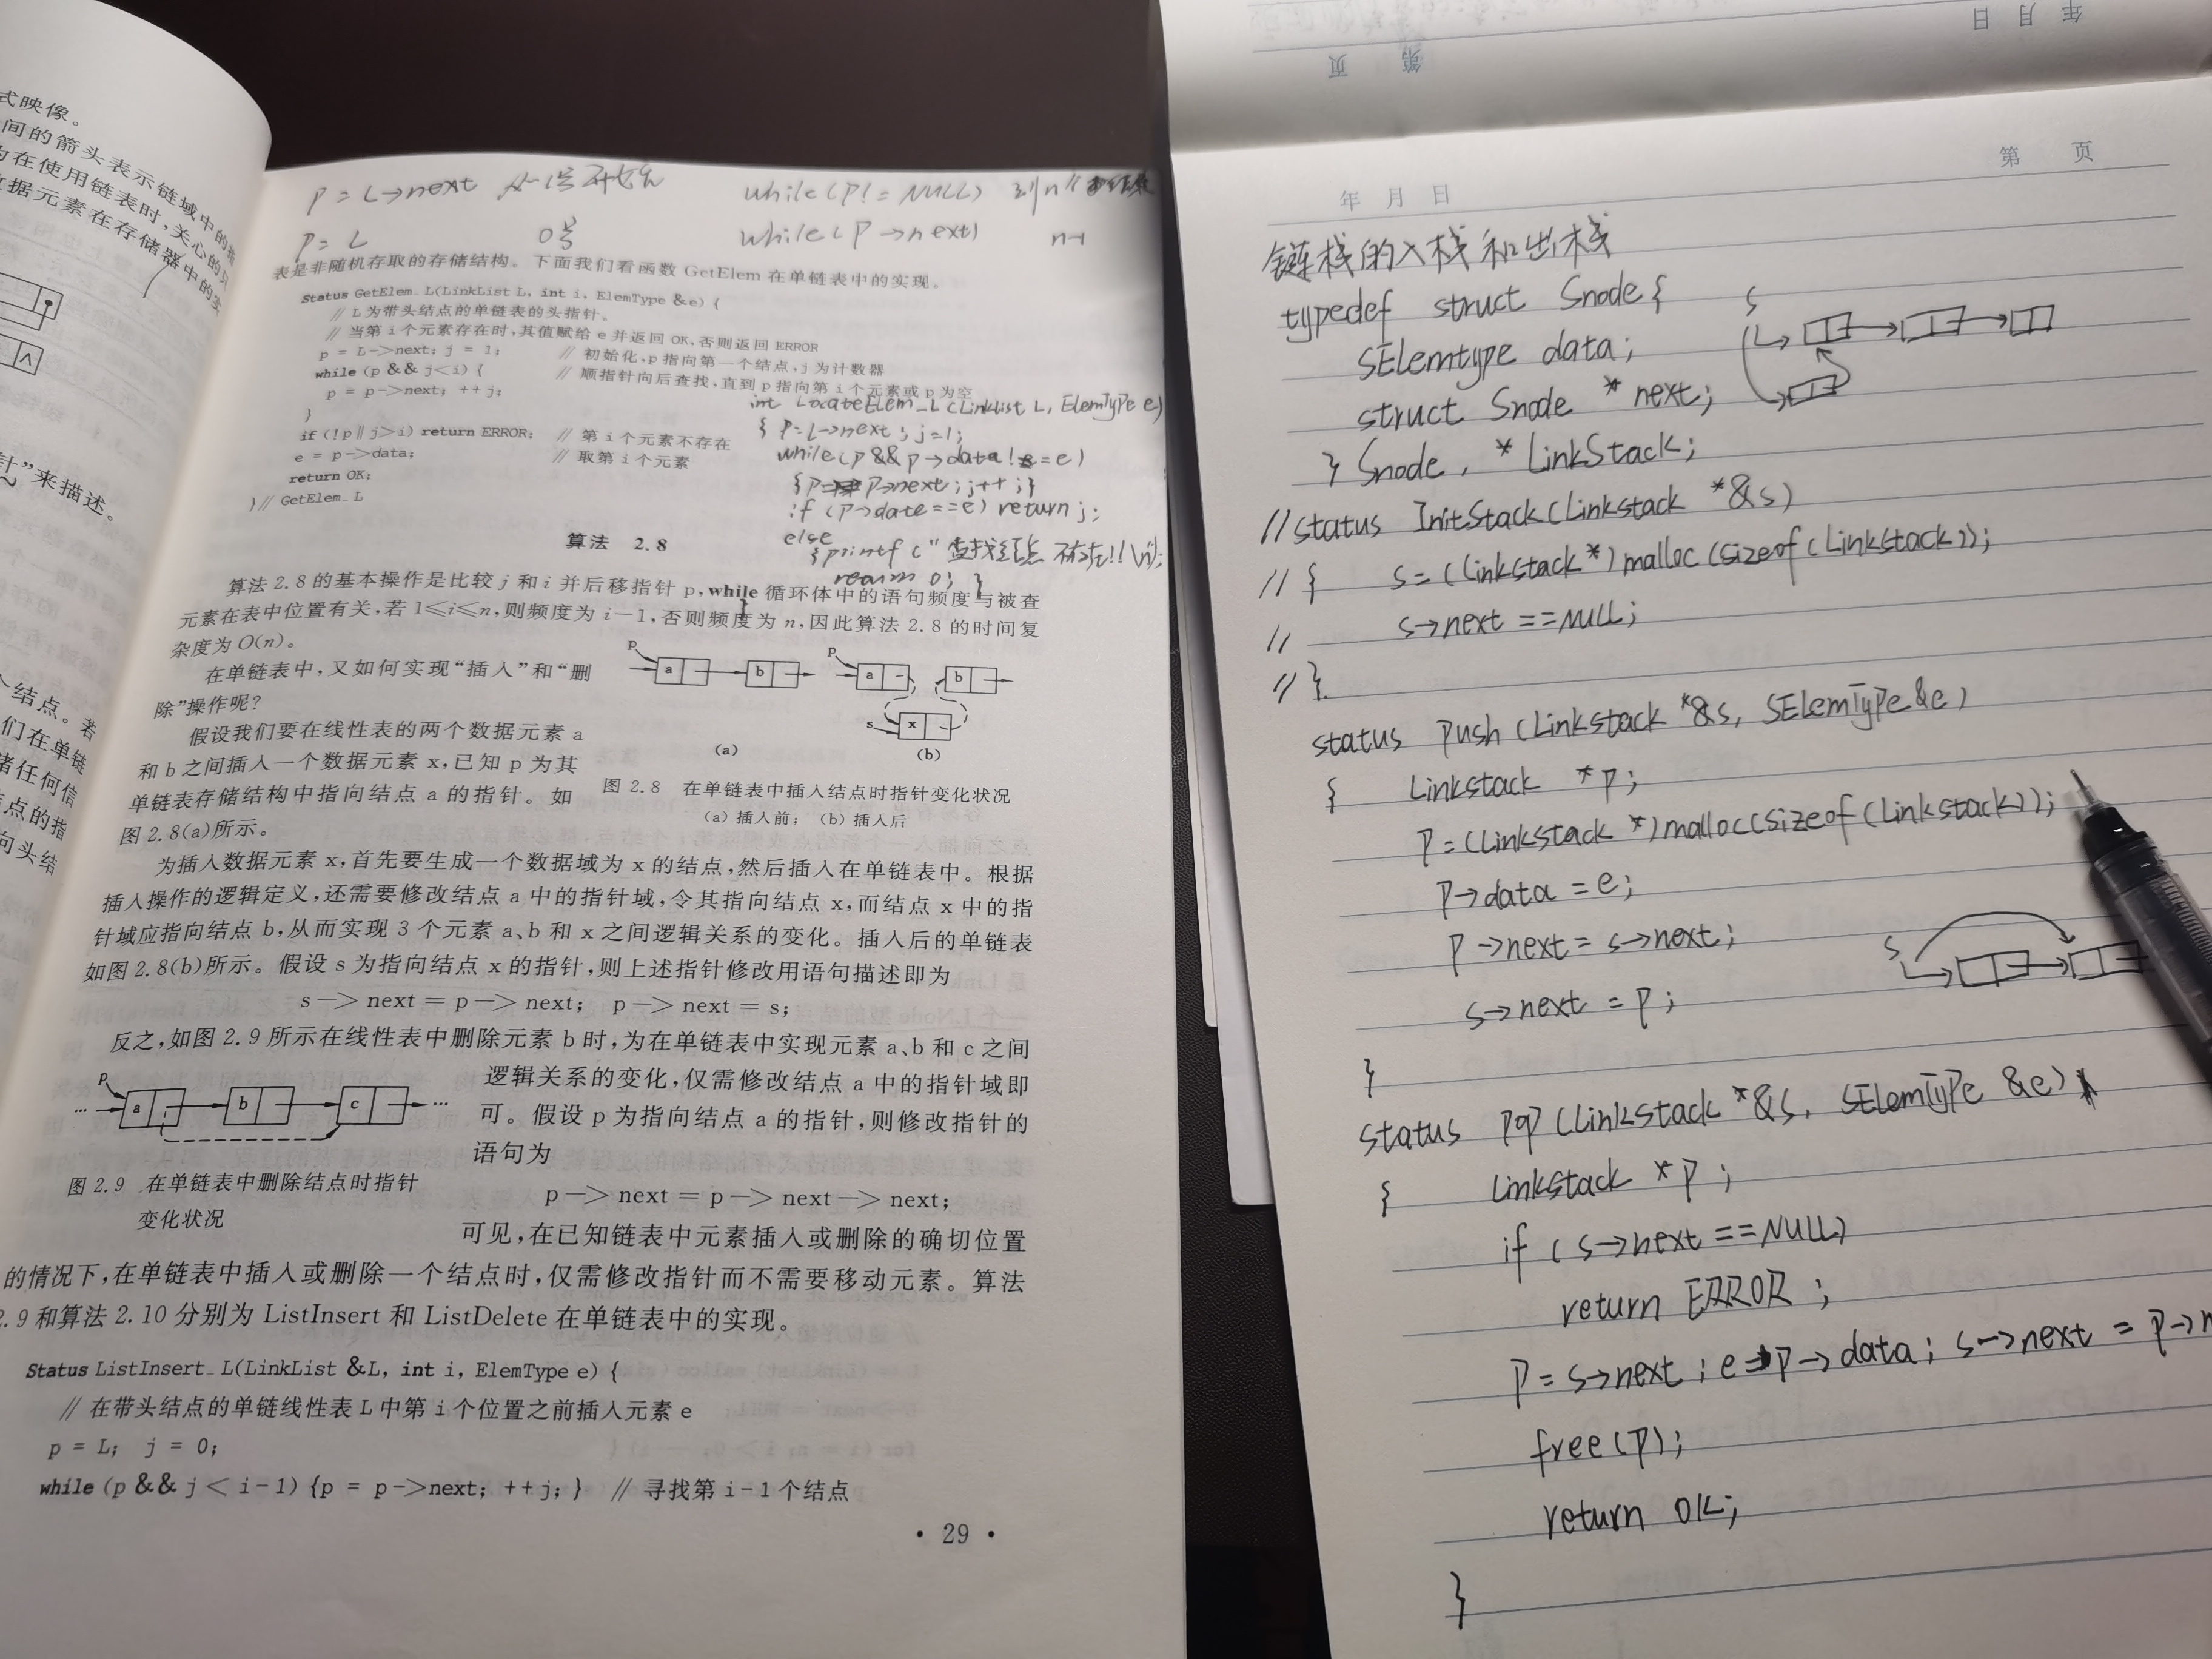 式映像。
间的箭头表示链域中的指
为在使用链表时,关心的只
据元素在存储器中的实
针”来描述。
个结点。若
们在单链
储任何信
点的指
向头结
p=L→next
while(p!=NULL)
p=L 0号 while(p→next) n-1
表是非随机存取的存储结构。下面我们看函数 GetElem 在单链表中的实现。
Status GetElem_L(LinkList L, int i, ElemType &e) {
// L为带头结点的单链表的头指针。
// 当第 i 个元素存在时,其值赋给 e 并返回 OK,否则返回 ERROR
p = L->next; j = 1; // 初始化,p 指向第一个结点,j 为计数器
while (p && j<i) { // 顺指针向后查找,直到 p 指向第 i 个元素或 p 为空
p = p->next; ++j;
}
if (!p || j>i) return ERROR; // 第 i 个元素不存在
e = p->data; // 取第 i 个元素
return OK;
}// GetElem_L
int LocateElem_L(Linklist L, ElemType e)
{ p=L→next; j=1;
while(p && p→data!=e)
{p=p→next; j++;}
if (p→date==e) return j;
else
{printf("查找结点不存在!!\n");
return 0; }
}
算法 2.8
算法 2.8 的基本操作是比较 j 和 i 并后移指针 p,while 循环体中的语句频度与被查
元素在表中位置有关,若 1≤i≤n,则频度为 i-1,否则频度为 n,因此算法 2.8 的时间复
杂度为 O(n)。
在单链表中,又如何实现“插入”和“删
除”操作呢?
假设我们要在线性表的两个数据元素 a
和 b 之间插入一个数据元素 x,已知 p 为其
单链表存储结构中指向结点 a 的指针。如
图 2.8(a)所示。
p a b
p a b
s x
(a) (b)
图 2.8 在单链表中插入结点时指针变化状况
(a) 插入前; (b) 插入后
为插入数据元素 x,首先要生成一个数据域为 x 的结点,然后插入在单链表中。根据
插入操作的逻辑定义,还需要修改结点 a 中的指针域,令其指向结点 x,而结点 x 中的指
针域应指向结点 b,从而实现 3 个元素 a、b 和 x 之间逻辑关系的变化。插入后的单链表
如图 2.8(b)所示。假设 s 为指向结点 x 的指针,则上述指针修改用语句描述即为
s -> next = p -> next; p -> next = s;
反之,如图 2.9 所示在线性表中删除元素 b 时,为在单链表中实现元素 a、b 和 c 之间
逻辑关系的变化,仅需修改结点 a 中的指针域即
可。假设 p 为指向结点 a 的指针,则修改指针的
语句为
p -> next = p -> next -> next;
p
… a b c …
图 2.9 在单链表中删除结点时指针
变化状况
可见,在已知链表中元素插入或删除的确切位置
的情况下,在单链表中插入或删除一个结点时,仅需修改指针而不需要移动元素。算法
2.9 和算法 2.10 分别为 ListInsert 和 ListDelete 在单链表中的实现。
Status ListInsert_L(LinkList &L, int i, ElemType e) {
// 在带头结点的单链线性表 L 中第 i 个位置之前插入元素 e
p = L; j = 0;
while (p && j < i-1) {p = p->next; ++j; } // 寻找第 i-1 个结点
• 29 •
年 月 日
第 页
第 页
年 月 日
链栈的入栈和出栈
typedef struct Snode{
SElemtype data;
struct Snode * next;
} Snode, * LinkStack;
S
//status InitStack(Linkstack *&s)
// { s=(Linkstack*)malloc(sizeof(Linkstack));
// s→next ==NULL;
// }
status push (Linkstack *&s, SElemType &e)
{ Linkstack *p;
p=(Linkstack *)malloc(sizeof(Linkstack));
p→data = e;
p→next = s→next;
s→next = p;
}
S
status pop (Linkstack *&s, SElemType &e)
{ Linkstack *p;
if (s→next ==NULL)
return ERROR;
p=s→next; e=p→data; s→next = p→n
free(p);
return OK;
}